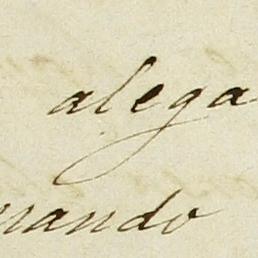 alega
mando